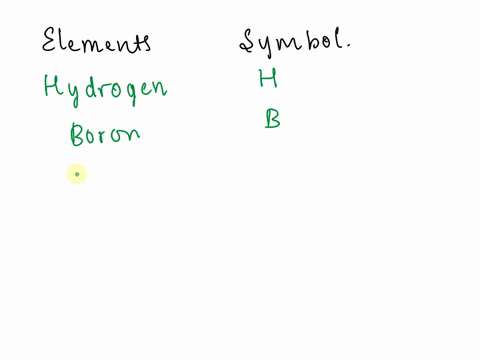 Elements Symbol.
Hydrogen H
Boron B